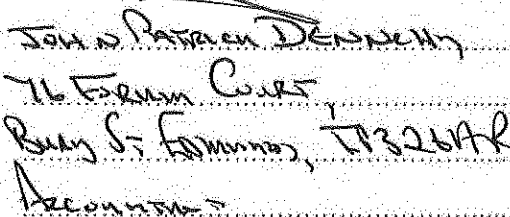 JOHN PATRICK DENNEHY
76 FORUM COURT,
BURY ST EDMUNDS, IP32 6AR
ACCOUNTANT